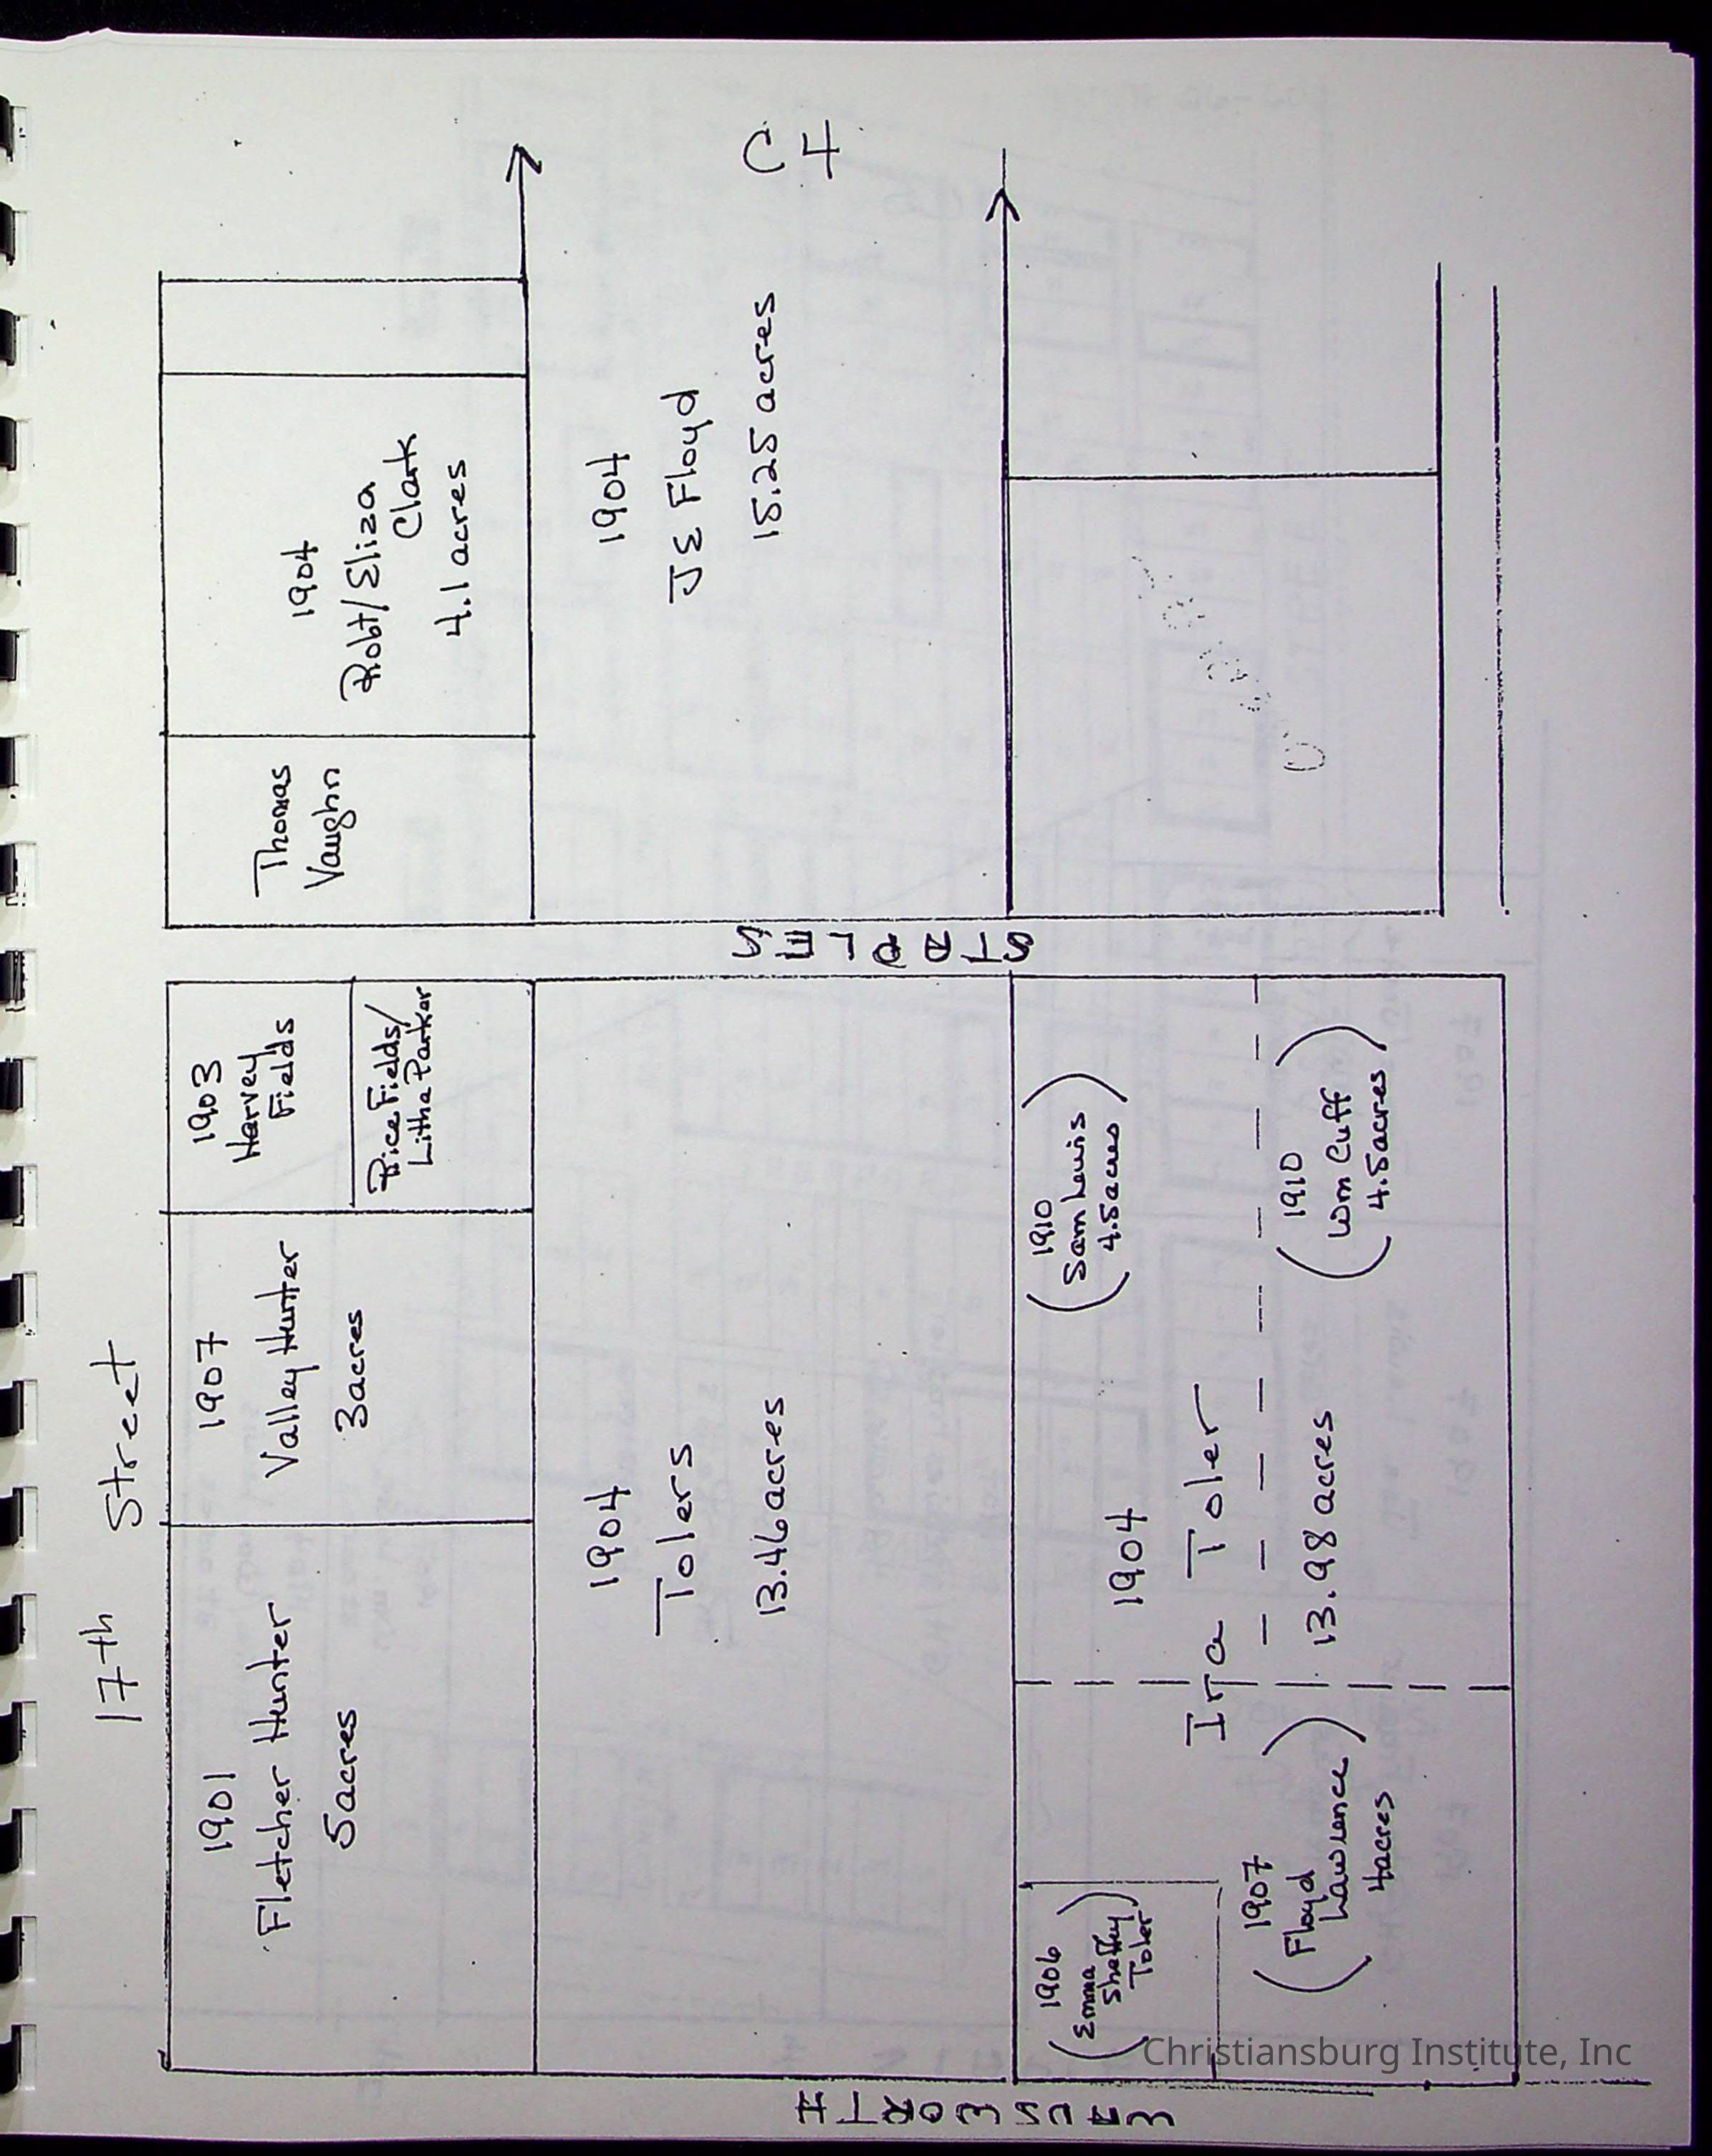 17th Street
1901
Fletcher Hunter
5acres
1907
Valley Hunter
3acres
1903
Harvey
Fields
Price Fields/
Litha Parker
Thomas
Vaughn
1904
Robt/Eliza
Clark
4.1 acres
WADSWORTH
1904
Tolers
13.46acres
STAPLES
1904
JE Floyd
15.25 acres
1906
(Emma
Sheffey
Toler)
1904
Ira Toler
13.98 acres
1907
(Floyd
Lawrence)
4acres
1910
(Sam Lewis
4.5acres)
1910
(Wm Cuff
4.5acres)
Christiansburg Institute, Inc